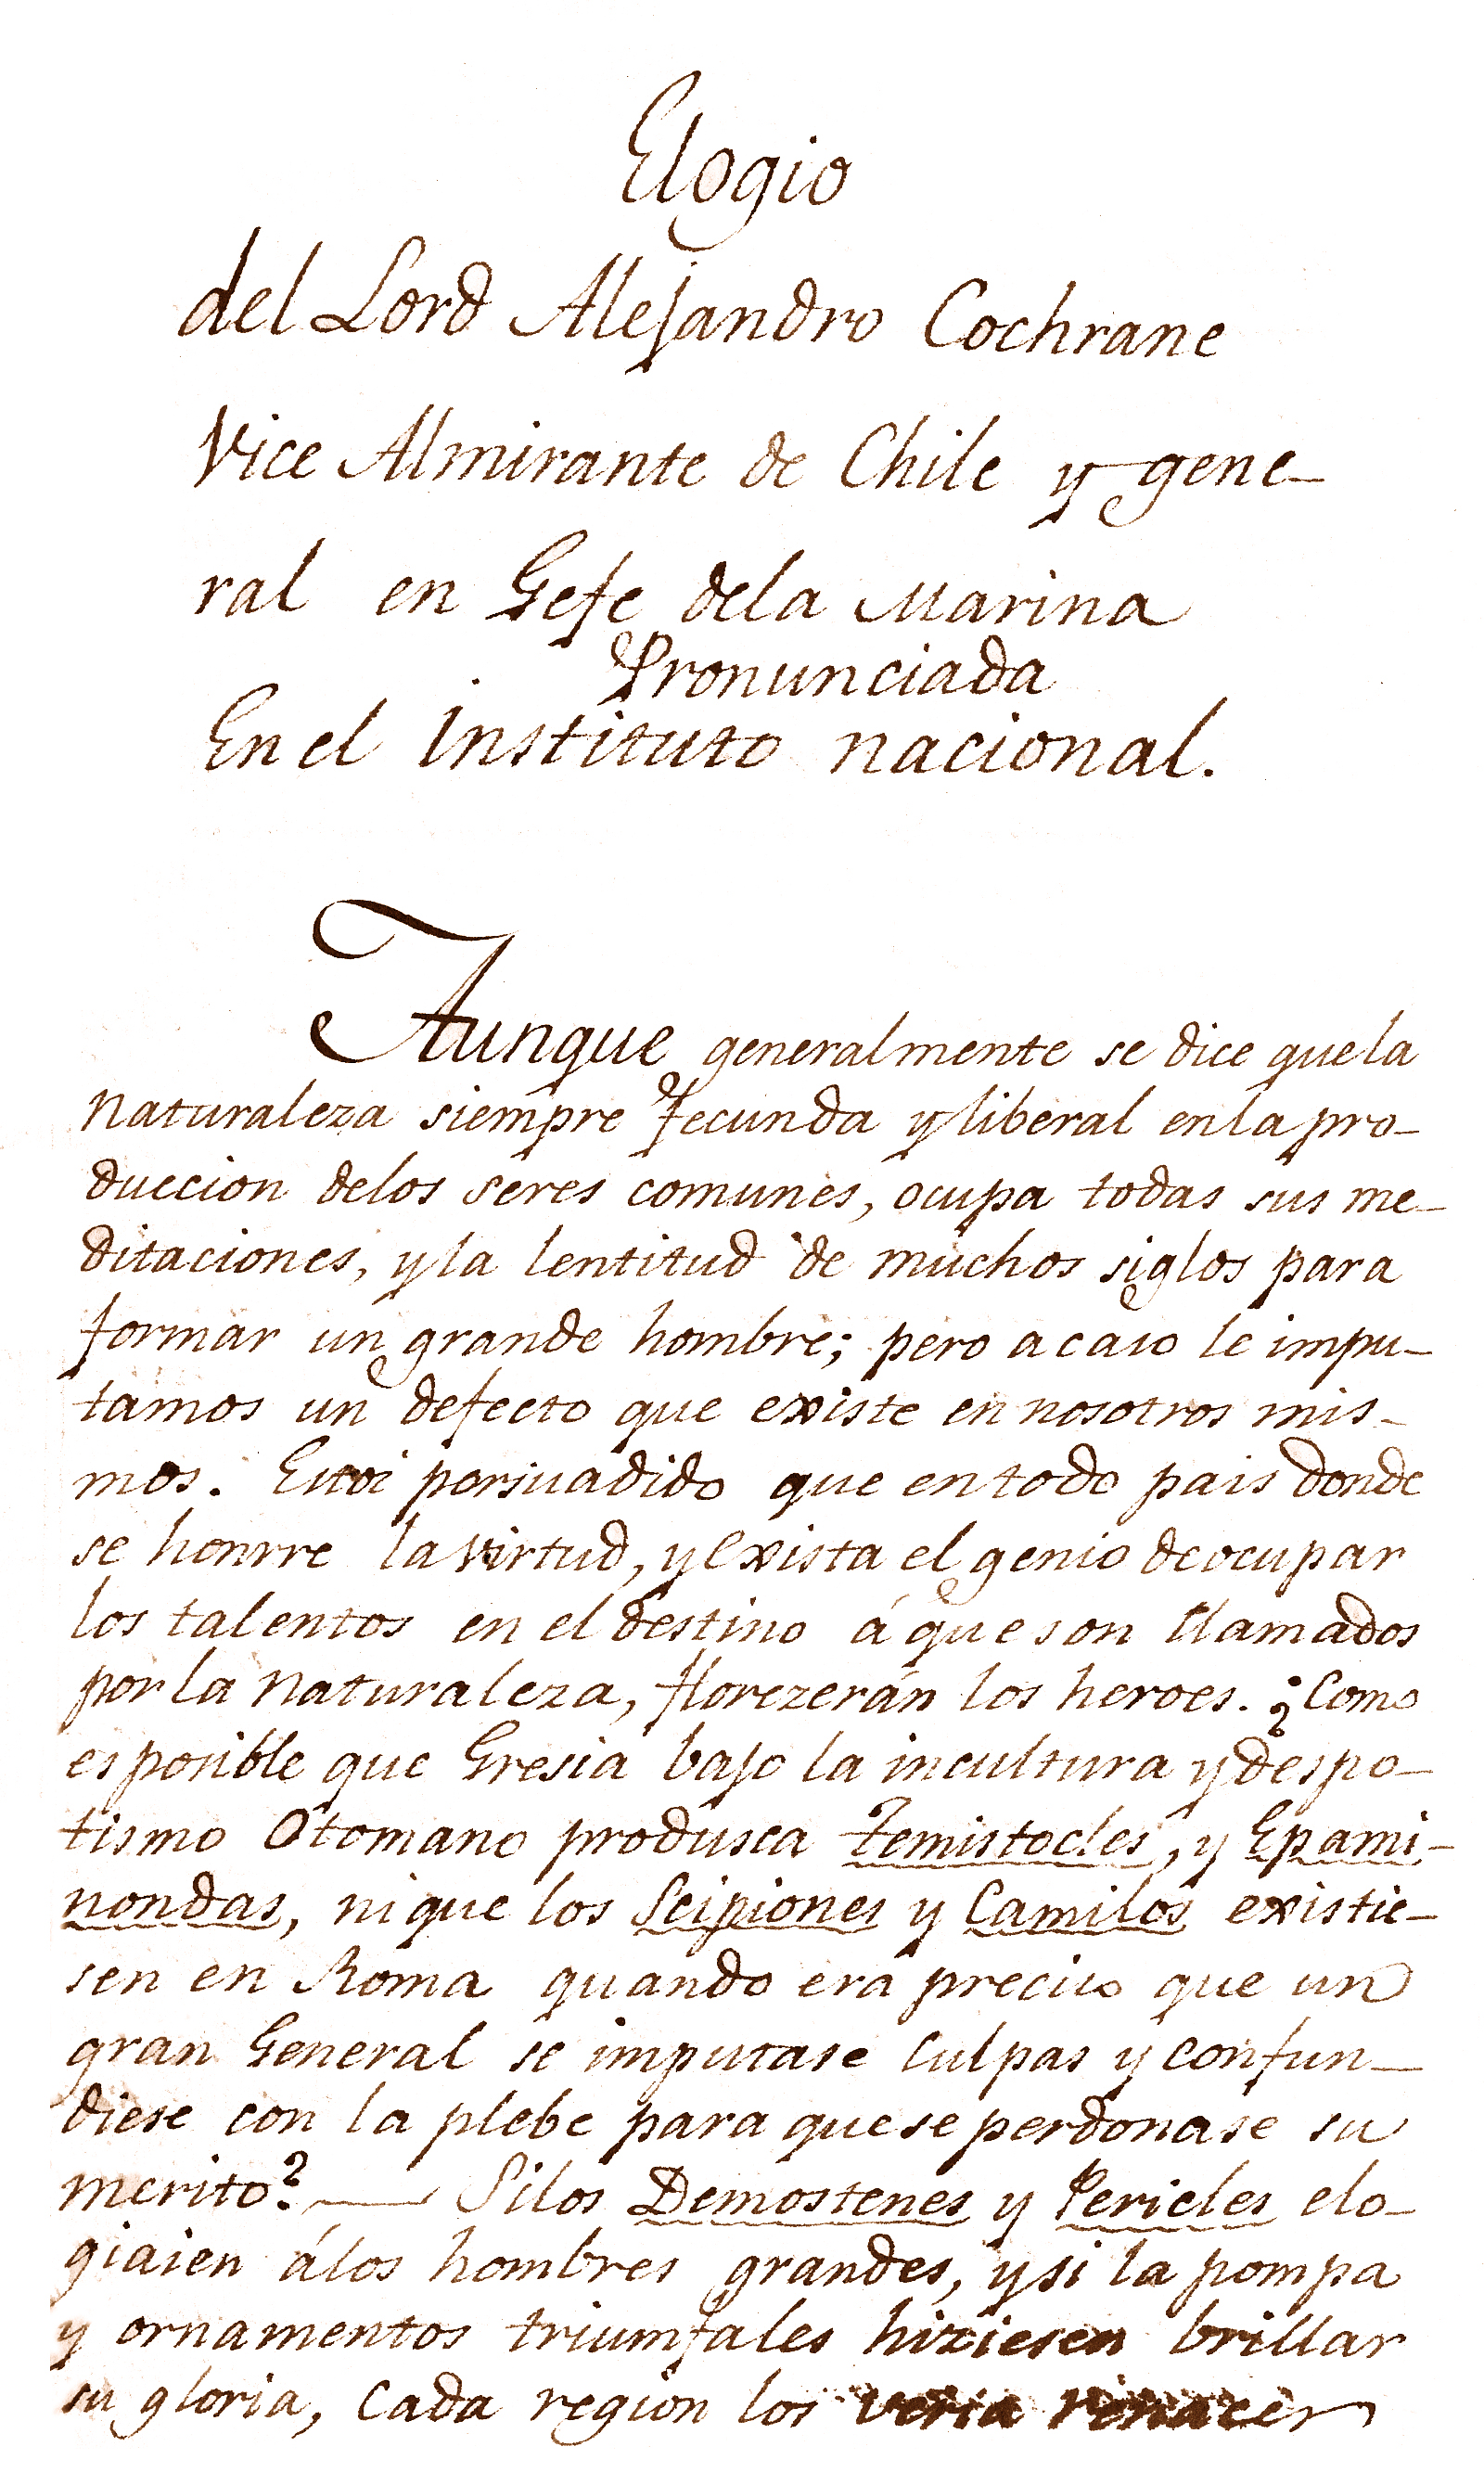 Elogio
del Lord Alejandro Cochrane
Vice Almirante de Chile y gene-
ral en Gefe dela Marina
Pronunciada
En el Instituto nacional.
Aunque generalmente se dice quela
naturaleza siempre fecunda y liberal enla pro-
duccion delos seres comunes, ocupa todas sus me-
ditaciones, y la lentitud de muchos siglos para
formar un grande hombre; pero acaso le impu-
tamos un defecto que existe en nosotros mis-
mos. Estoi persuadido que entodo pais donde
se honrre la virtud, y exista el genio de ocupar
los talentos en el destino á que son llamados
por la naturaleza, florezerán los heroes. ¿Como
es posible que Gresia bajo la incultura y despo-
tismo Otomano produsca Temistocles, y Epami-
nondas, ni que los Scipiones y Camilos existie-
sen en Roma quando era preciso que un
gran General se imputase culpas y confun-
diese con la plebe para que se perdonase su
merito? — Silos Demostenes y Pericles elo-
giasen álos hombres grandes, y si la pompa
y ornamentos triumfales hiziesen brillar
su gloria, cada region los veria renacer